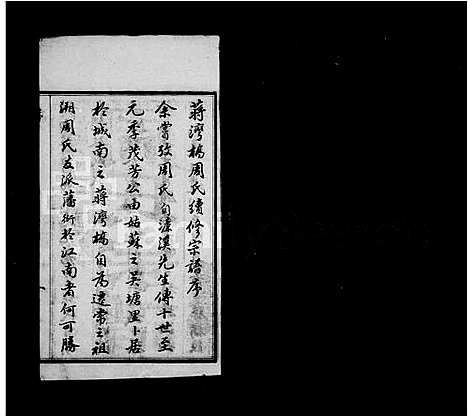 蔣灣橋周氏續修宗譜序
余嘗攷周氏自濂溪先生傳十世至
元季茂芳公由姑蘇之吳塘里卜居
於城南之蔣灣橋自為遷常之祖
溯周氏支派藩衍於江南者何可勝